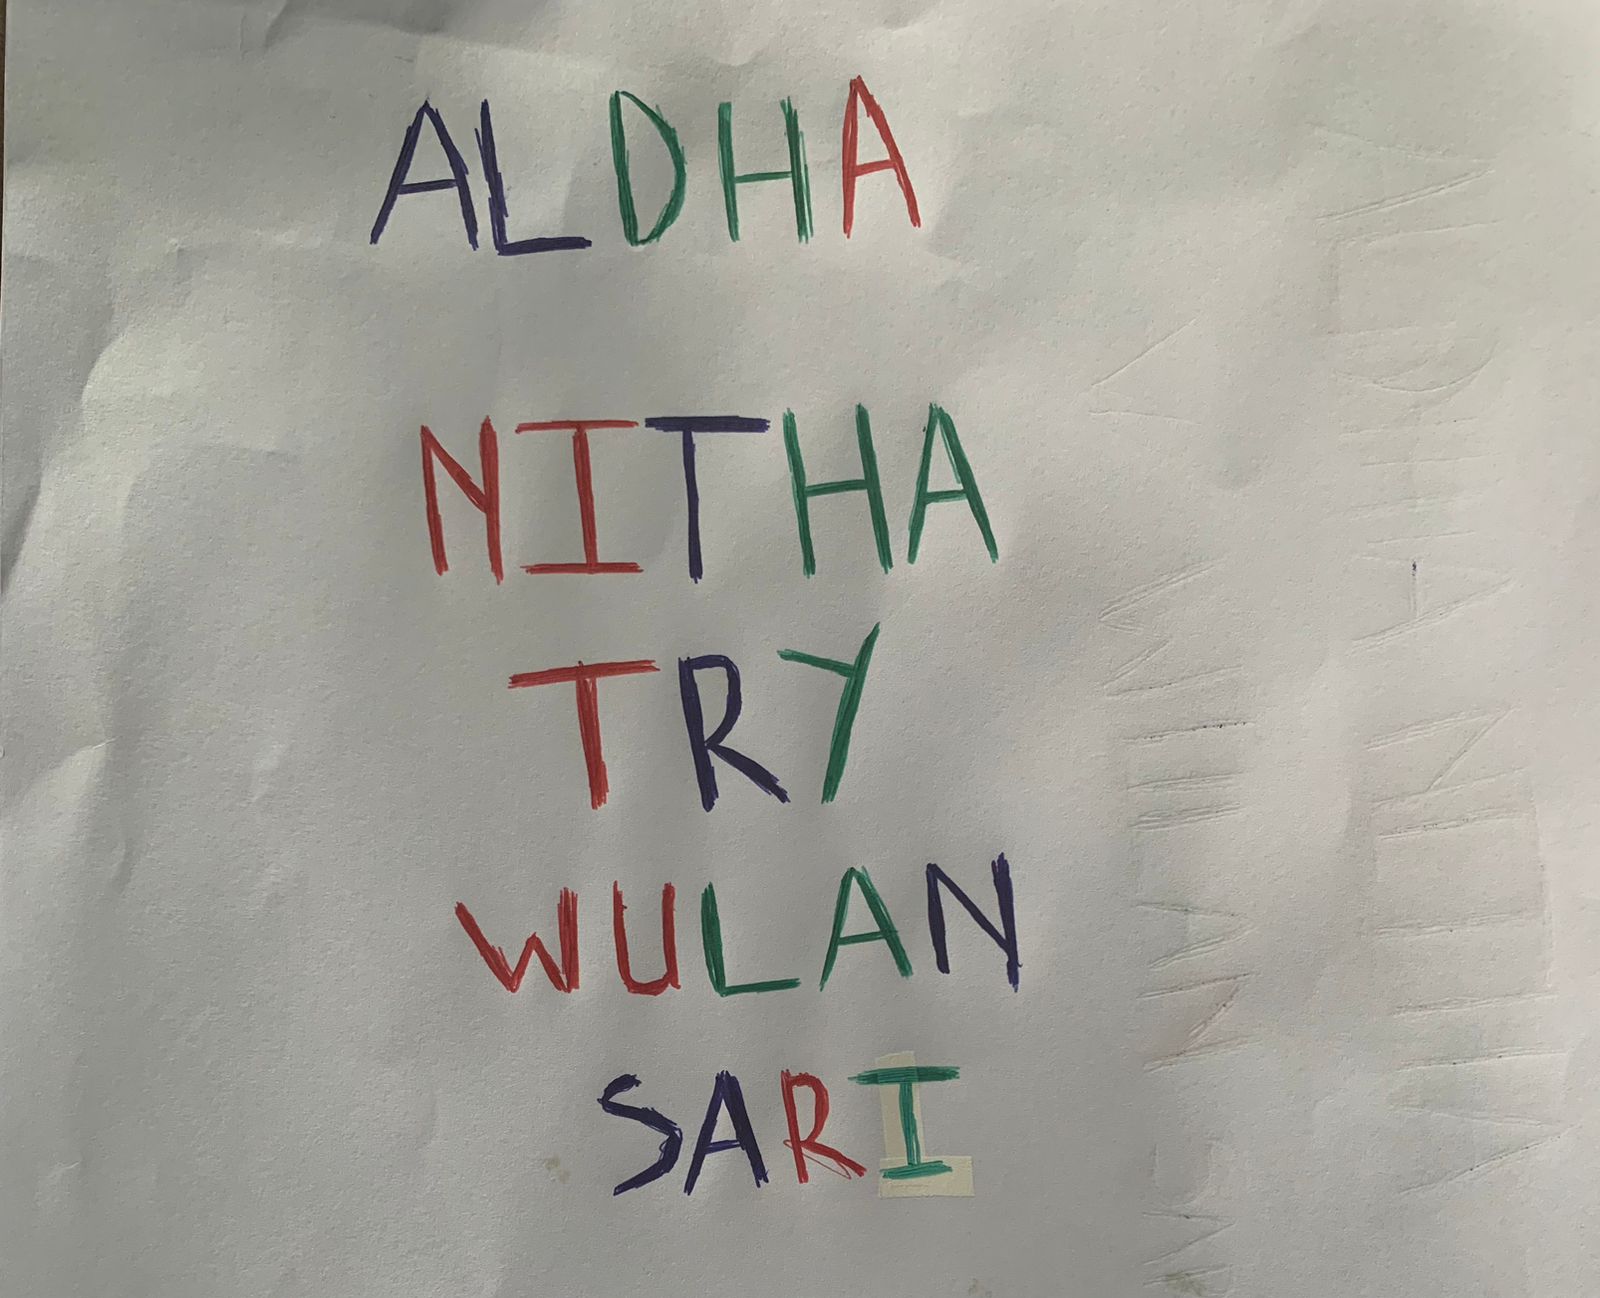 ALDHA
NITHA
TRY
WULAN
SARI